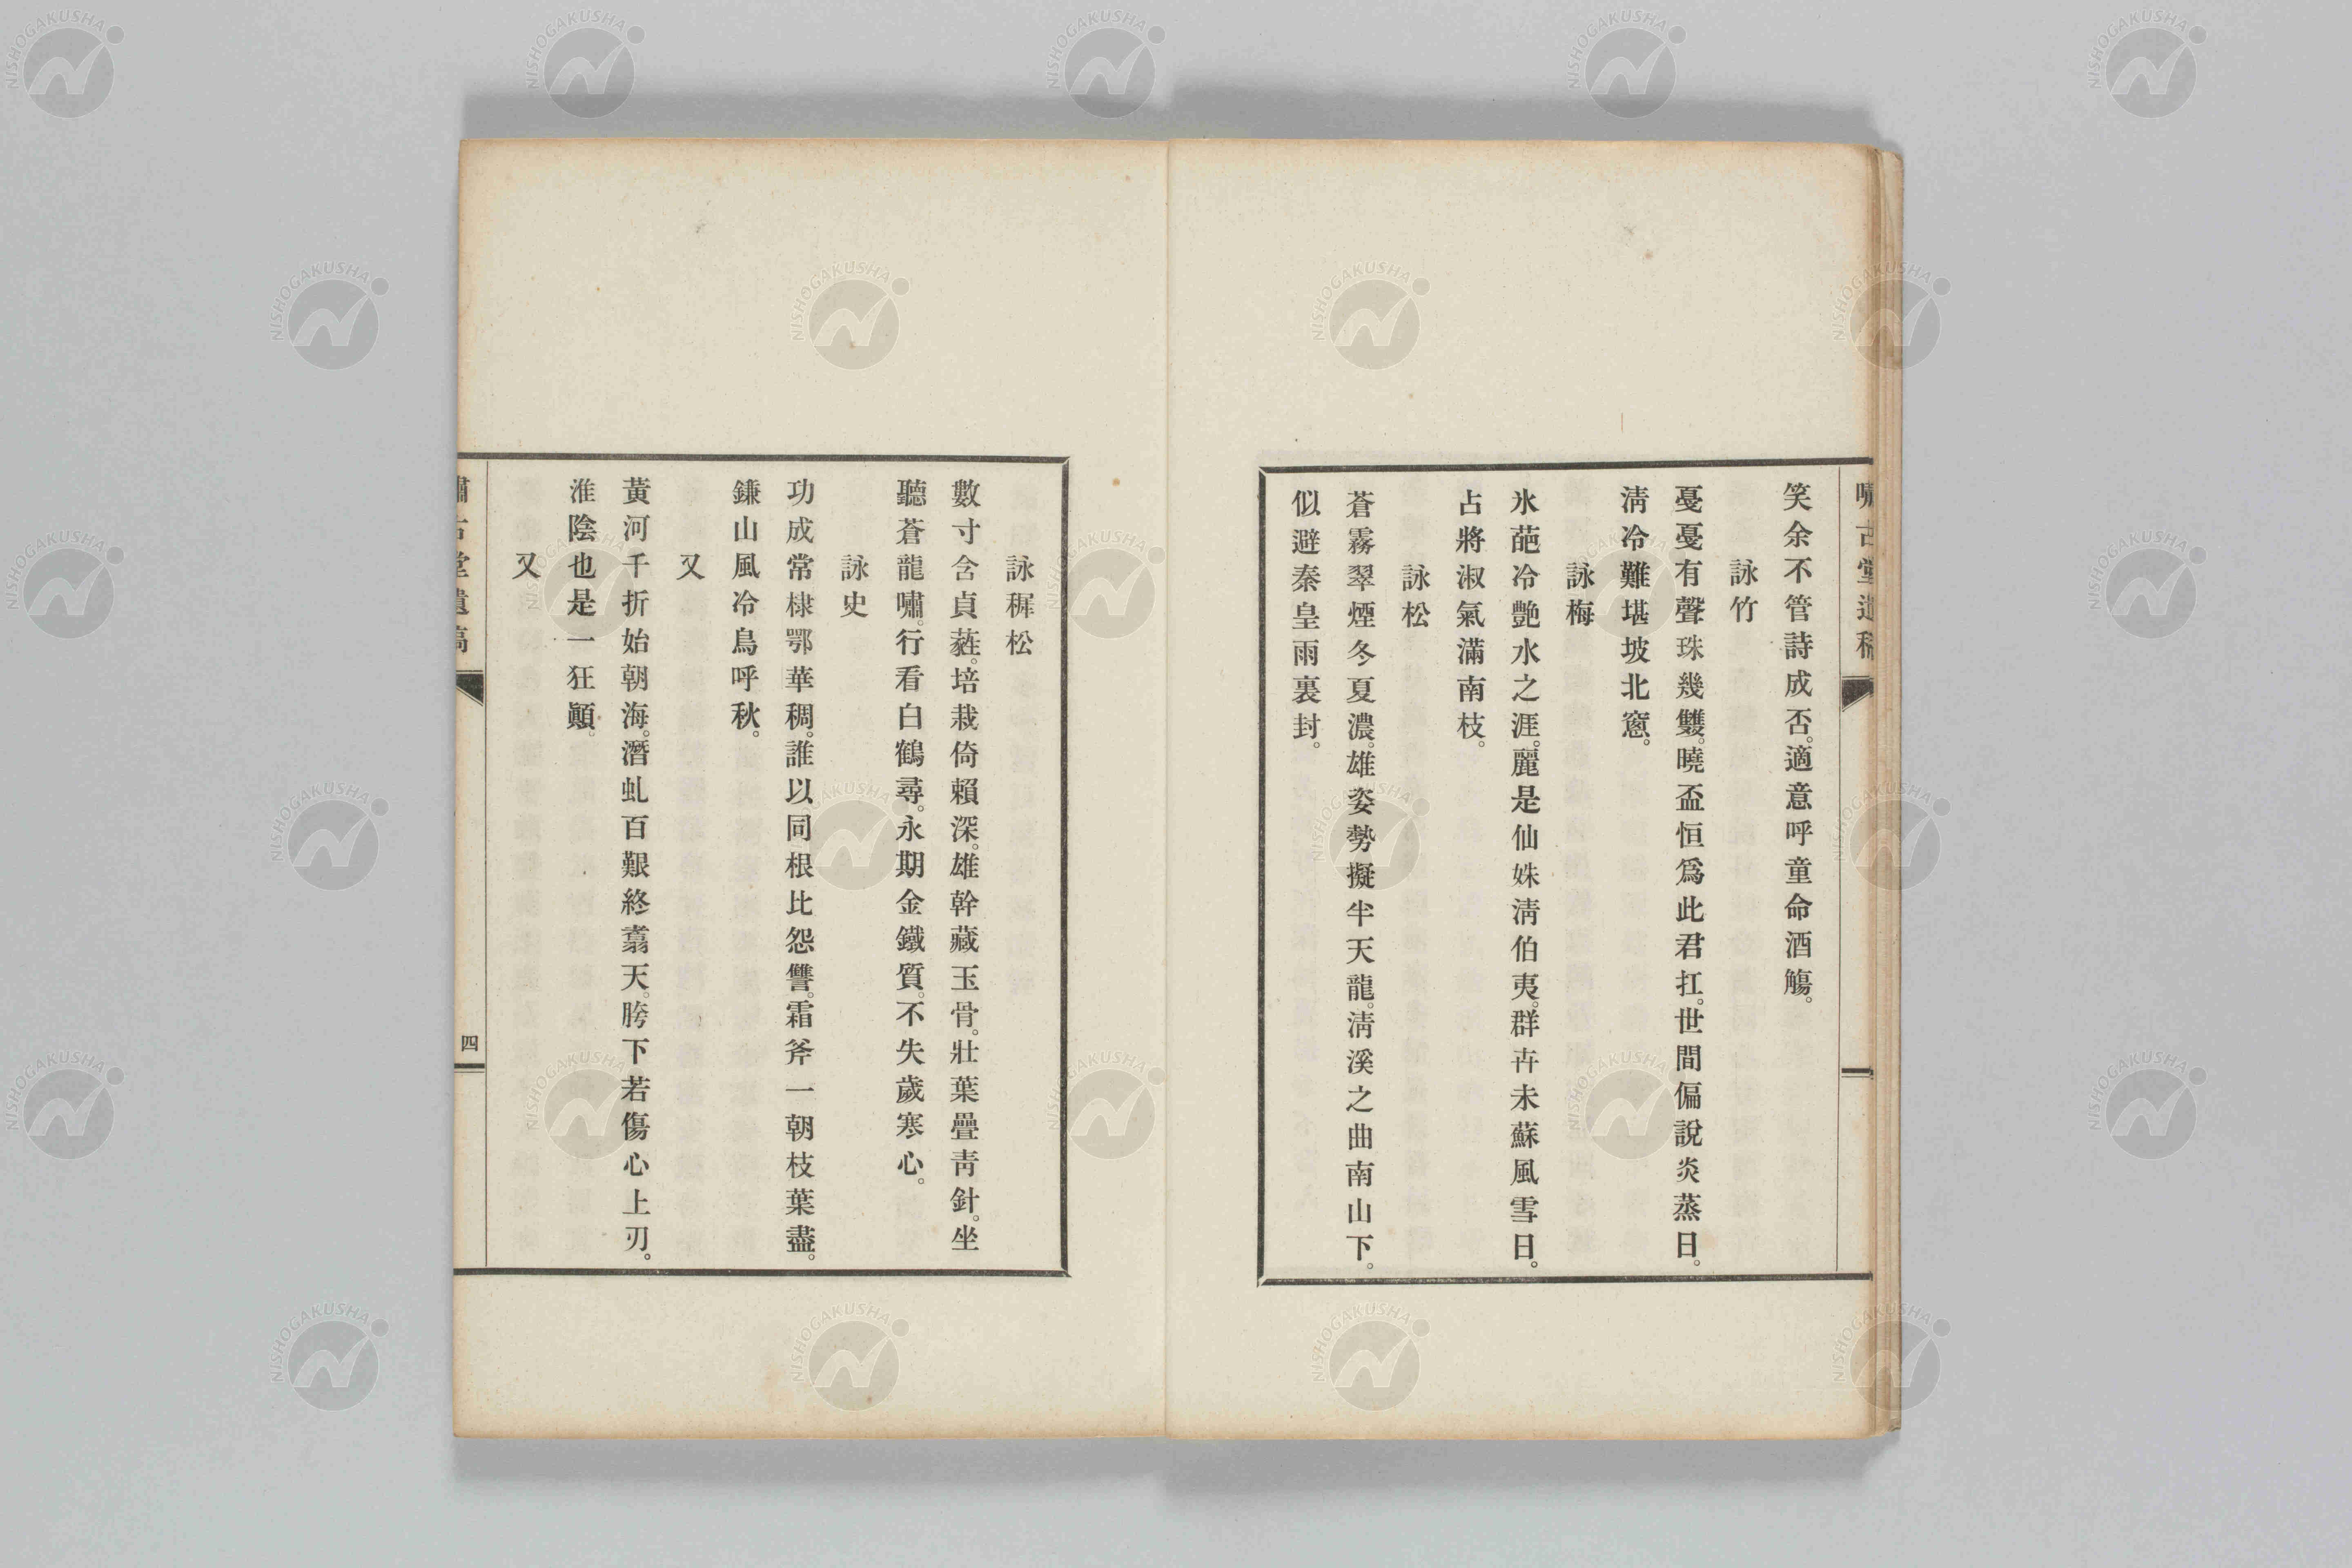 嘯古堂遺稿
笑余不管詩成否。適意呼童命酒觴。
詠竹
戞戞有聲珠幾雙。曉盃恒爲此君扛。世間偏說炎蒸日。
淸冷難堪坡北窻。
詠梅
氷葩冷艶水之涯。麗是仙姝淸伯夷。群卉未蘇風雪日。
占將淑氣滿南枝。
詠松
蒼霧翠煙冬夏濃。雄姿勢擬半天龍。淸溪之曲南山下。
似避秦皇雨裏封。
詠穉松
數寸含貞蕤。培栽倚賴深。雄幹藏玉骨。壯葉疊靑針。坐
聽蒼龍嘯。行看白鶴尋。永期金鐵質。不失歲寒心。
詠史
功成常棣鄂華稠。誰以同根比怨讐。霜斧一朝枝葉盡。
鎌山風冷鳥呼秋。
又
黃河千折始朝海。潛虬百艱終翥天。胯下若傷心上刃。
淮陰也是一狂顚。
又
嘯古堂遺稿
四
NISHOGAKUSHA